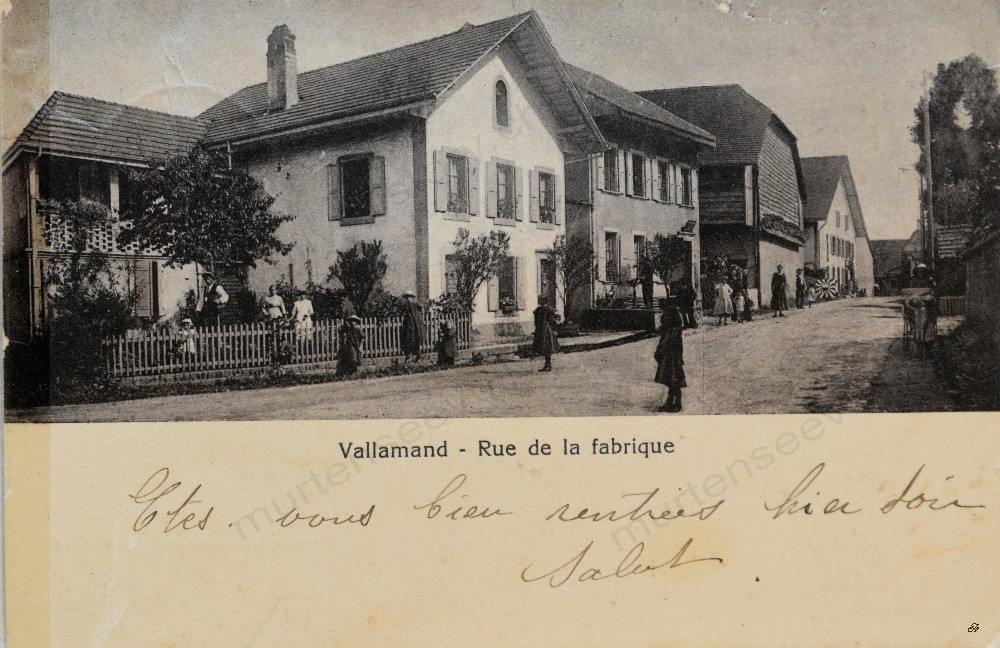 Vallamand - Rue de la fabrique
Etes vous bien rentrées hier soir
Salut